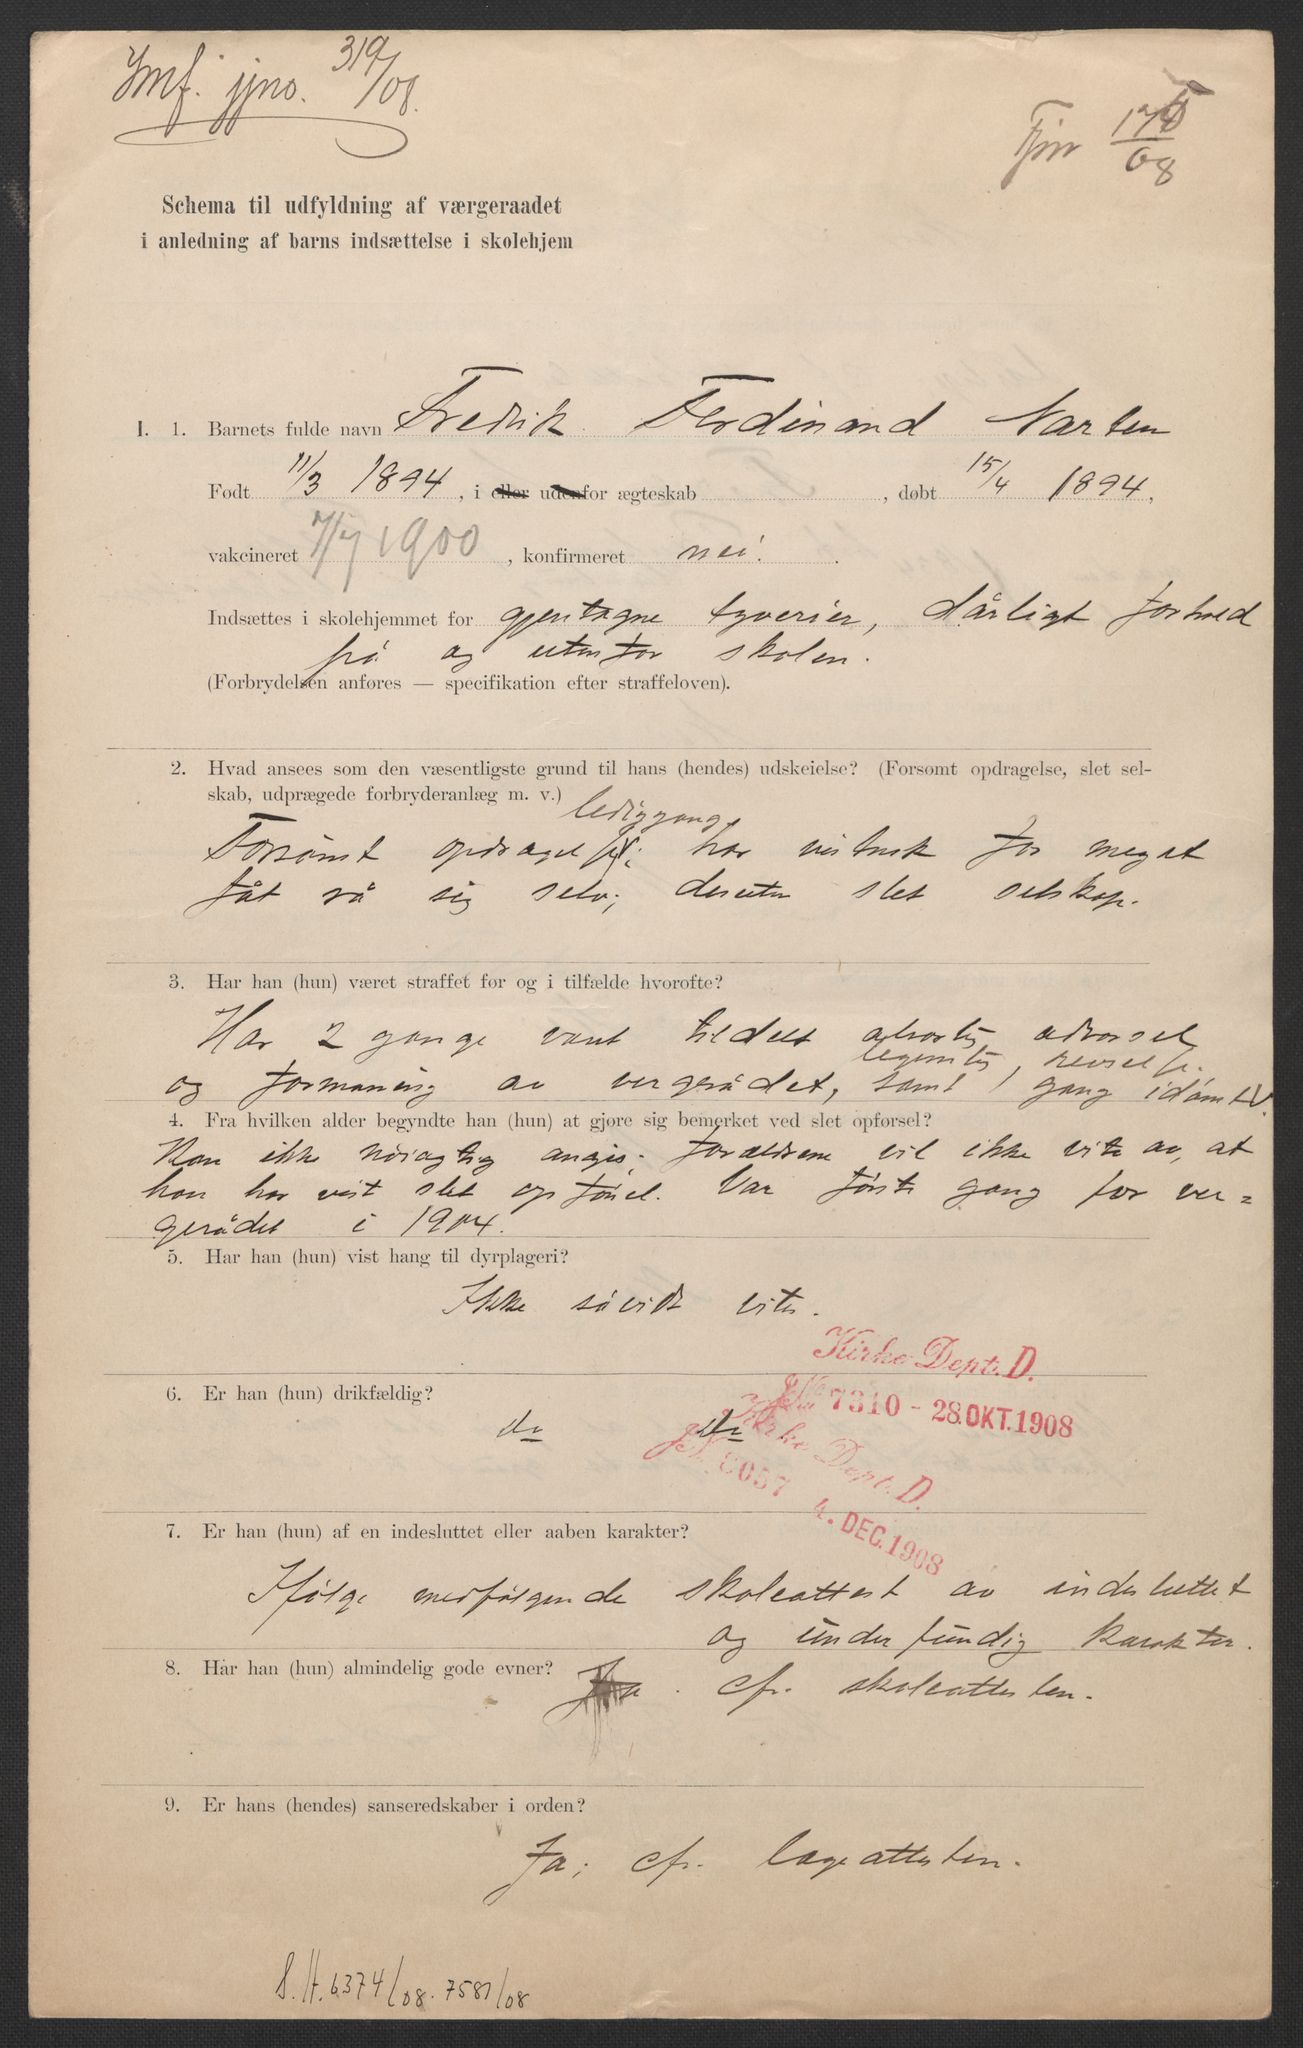 Jmf. jjno. 319/08.
Fjnr 178/08
Schema til udfyldning af værgeraadet
i anledning af barns indsættelse i skolehjem
I. 1. Barnets fulde navn Fredrik Ferdinand Narten
Født 11/3 1894, i eller udenfor ægteskab , døbt 15/4 1894.
vakcineret 1900, konfirmeret nei.
Indsættes i skolehjemmet for gjentagne tyverier, dårligt forhold
på og utenfor skolen.
(Forbrydelsen anføres — specifikation efter straffeloven).
2. Hvad ansees som den væsentligste grund til hans (hendes) udskeielse? (Forsømt opdragelse, slet sel-
skab, udprægede forbryderanlæg m. v.)
lediggang
Forsømt opdragelse; har vistnok for meget
fåt rå sig selv; desuten slet selskap.
3. Har han (hun) været straffet før og i tilfælde hvorofte?
Har 2 gange vært tildelt alvorlig advarsel
og formaning av vergerådet, samt 1 gang idømt
legemlig revselse.
4. Fra hvilken alder begyndte han (hun) at gjøre sig bemerket ved slet opførsel?
Kan ikke nøiagtig angis; forældrene vil ikke vite av, at
han har vist slet opførsel. Var første gang for ver=
gerådet i 1904.
5. Har han (hun) vist hang til dyrplageri?
Ikke såvidt vites.
Kirke Dept. D.
JNo 7310 - 28.OKT.1908
6. Er han (hun) drikfældig?
do do
Kirke Dept. D.
JN. 8057 4. DEC. 1908
7. Er han (hun) af en indesluttet eller aaben karakter?
Ifølge medfølgende skoleattest av indesluttet
og underfundig karakter.
8. Har han (hun) almindelig gode evner?
Ja. cfr. skoleattesten.
9. Er hans (hendes) sanseredskaber i orden?
Ja; cfr. lægeattesten.
S.H. 6374/08. 7581/08